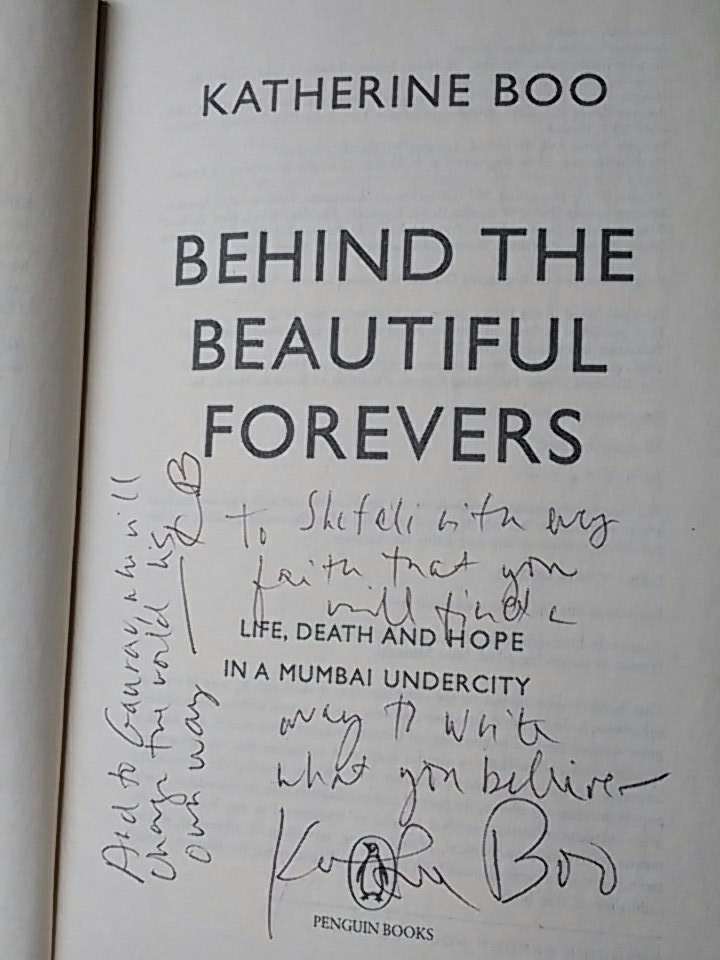 KATHERINE BOO
BEHIND THE
BEAUTIFUL
FOREVERS
To Shefali with every
faith that you
will find a
LIFE, DEATH AND HOPE
IN A MUMBAI UNDERCITY
way to write
what you believe—
Boo
PENGUIN BOOKS
And to Gaurav, who will
change the world his
own way — KB